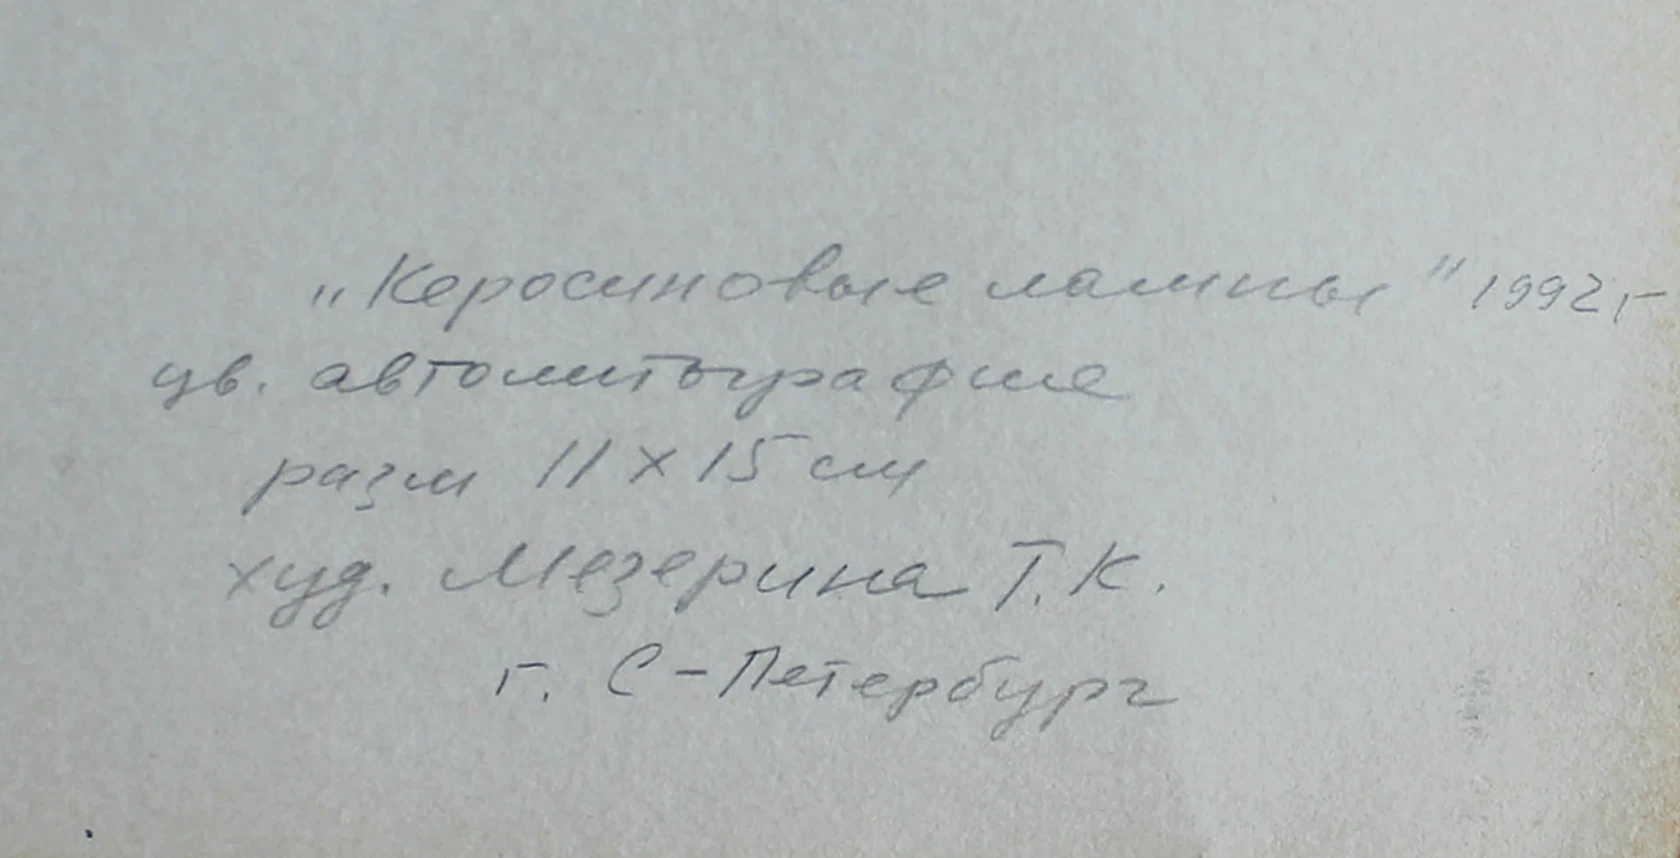 „Керосиновые лампы" 1992 г
цв. автолитография
разм 11 х 15 см
худ. Мезерина Т.К.
г. С-Петербург